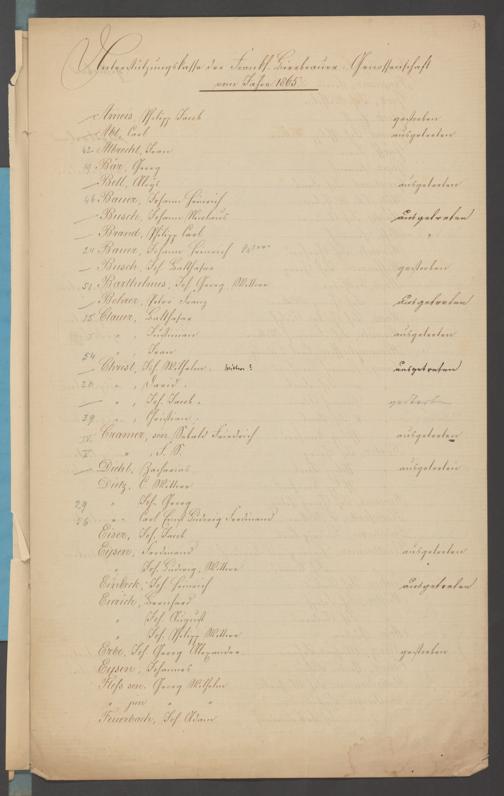 Unterstützungskasse der Frankf. Bierbrauer-Genossenschaft
vom Jahre 1865
— Ameis, Philipp Jacob gestorben
— Abt, Carl ausgetreten
42 Albrecht, Jean
19 Bär, Georg
— Bell, Aloys ausgetreten
46 Bauer, Johann Heinrich
— Busch, Johann Nicolaus ausgetreten
— Brand, Philipp Carl "
24 Bauer, Johann Heinrich
— Busch, Joh Balthasar gestorben
51 Barthelmes, Joh Georg, Wittwe
— Peter Franz ausgetreten
15 Clauer, Balthasar
" , ausgetreten
54 " , Jean
— Christ, Joh Wilhelm. ausgetreten
20 " , David.
— " , Joh. Jacob. gestorben
39 " , Christian.
Cramer, sen. Sebald Friedrich ausgetreten
" , J. S.
— Diehl, Zacharias ausgetreten
Dietz, C. Wittwe
29 " Joh. Georg
56 " Carl Ernst Ludwig Ferdinand
Eiser, Joh. Jacob
Eysen, Ferdinand ausgetreten
" Joh. Ludwig, Wittwe
Einbeck, Joh Heinrich ausgetreten
Emrich, Bernhard
" Joh August
" Joh. Philipp Wittwe
Erbe, Joh Georg Alexander gestorben
Eysen, Johannes
Floss sen. Georg Wilhelm
" jun " "
Feuerbach, Joh Adam